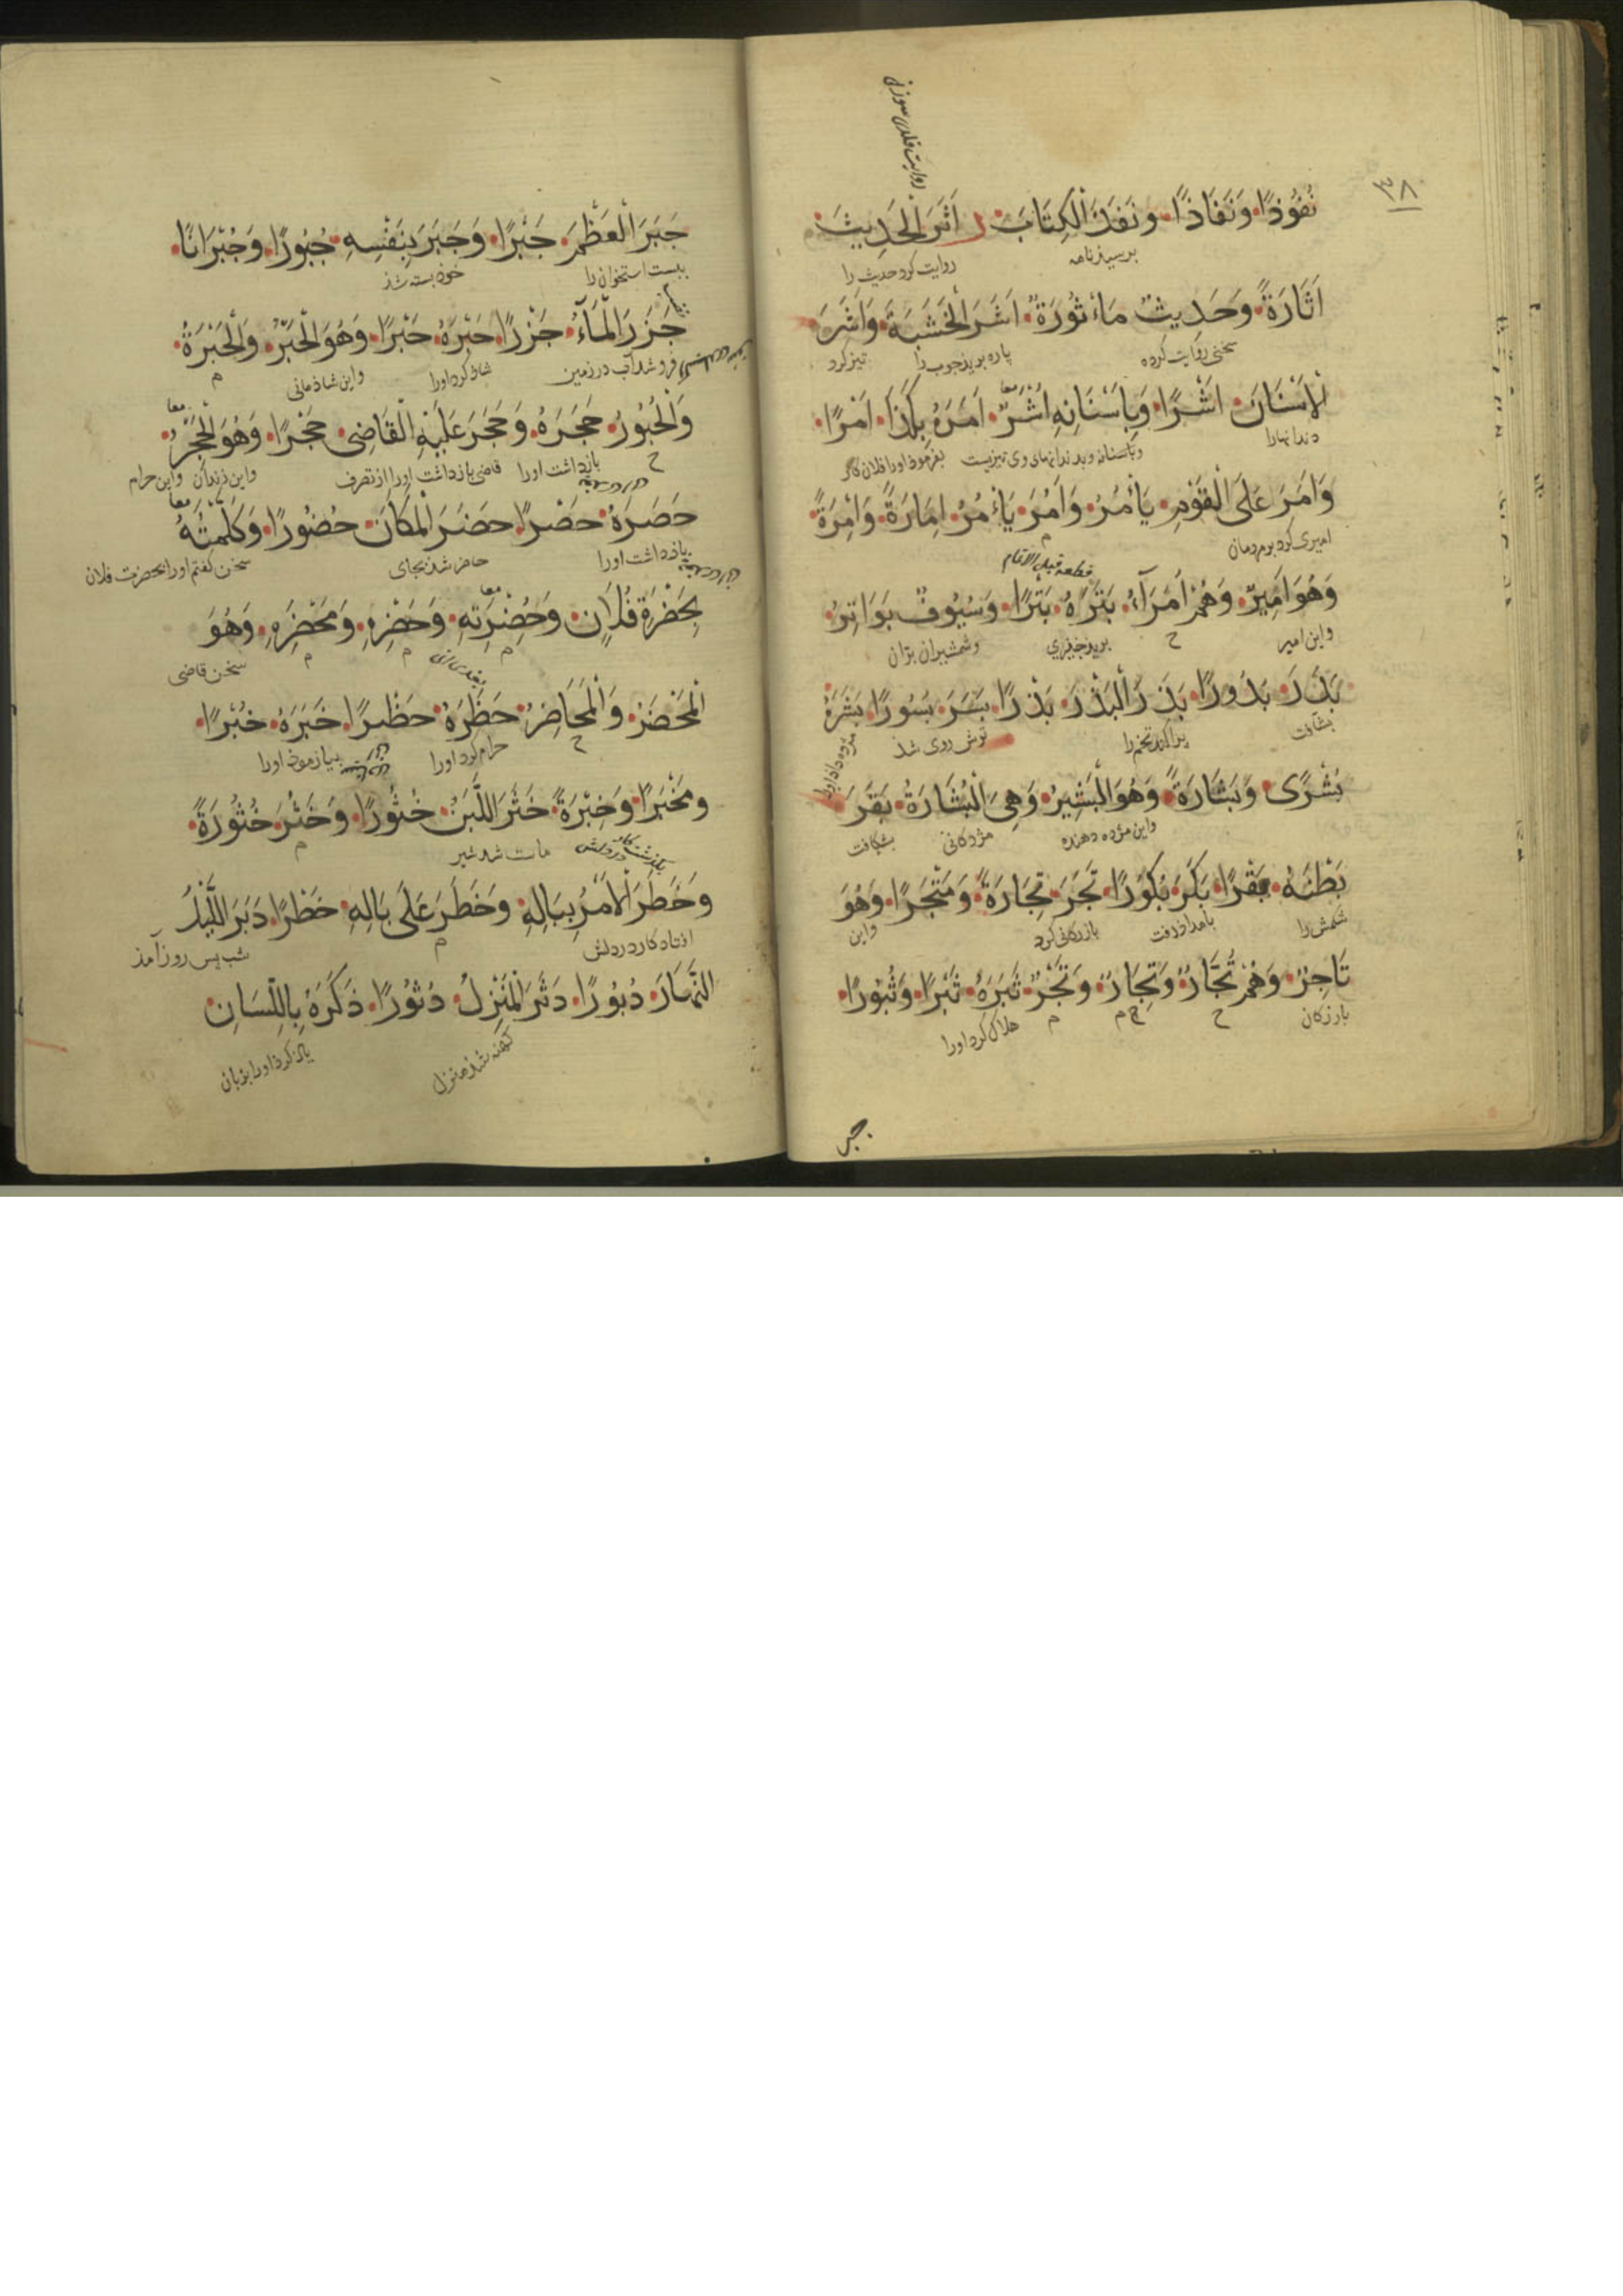 ٣٨
نُفُوذًا وَنَفَاذًا وَنَفَذَ الْكِتَابَ ر اَثَرَ الْحَدِيثَ
برسید نامه
روایت کرد حدیث را
اَثَارَةً وَحَدِيثٌ مَأْثُورَةٌ اَشَرَ الْخَشَبَةَ وَاَشَرَ
سخنی روایت کرده
پاره برید چوب را
تیز کرد
الْاَسْنَانَ اَشْرًا وَبِاَسْنَانِهِ اُشُرٌ اَمَرَهُ بِكَذَا اَمْرًا
معا
دندانها را
وبدندانهای وی تیزیست
بفرموذ اورا فلان کار
وَاَمَرَ عَلَى الْقَوْمِ يَأْمُرُ وَاَمُرَ يَأْمُرُ اِمَارَةً وَاِمْرَةً
امیری کرد بر مردمان
م
قطعه قبل الاتمام
وَهُوَ اَمِيرٌ وَهُمْ اُمَرَآءُ بَتَرَهُ بَتْرًا وَسُيُوفٌ بَوَاتِرُ
واین امیر
ح
وشمشیران بران
بَدَرَ بُدُورًا بَذَرَ الْبَذْرَ بَذْرًا بَسَرَ بُسُورًا بَشَرَهُ
بشتافت
پراکند تخم را
ترش روی شذ
مژده داذ اورا
بُشْرًى وَبِشَارَةً وَهُوَ الْبَشِيرُ وَهِيَ الْبُشَارَةُ بَقَرَ
واین مژده دهنده
مژدکانی
بشکافت
بَطْنَهُ بَقْرًا بَكَرَ بُكُورًا تَجَرَ تِجَارَةً وَمَتْجَرًا وَهُوَ
شکمش را
بامداذ رفت
بازرکانی کرد
واین
تَاجِرٌ وَهُمْ تُجَّارٌ وَتِجَارٌ وَتَجْرٌ ثَبَرَهُ ثَبْرًا وَثُبُورًا
بازرکان
ح
م
م
هلاک کرد اورا
جبر
جَبَرَ الْعَظْمَ جَبْرًا وَجَبَرَ بِنَفْسِهِ جُبُورًا وَجُبْرَانًا
ببست استخوان را
خوذ بسته شذ
جَزَرَ الْمَآءُ جَزْرًا حَبَرَهُ حَبْرًا وَهُوَ الْحَبْرُ وَالْحَبْرَةُ
فرو شد آب در زمین
شاذ کرد اورا
واین شاذمانی
م
وَالْحُبُورُ حَجَرَهُ وَحَجَرَ عَلَيْهِ الْقَاضِي حَجْرًا وَهُوَ الْحِجْرُ
معا
ح
بازداشت اورا
قاضی بازداشت اورا از تصرف
واین حرام
حَصَرَهُ حَصْرًا حَضَرَ الْمَكَانَ حُضُورًا وَكَلَّمْتُهُ
معا
بازداشت اورا
حاضر شذ بجای
سخن کفتم اورا بحضرت فلان
بِحَضْرَةِ فُلَانٍ وَحُضْرَتِهِ وَحَضَرِهِ وَمَحْضَرِهِ وَهُوَ
معا
م
م
م
سخن قاضی
الْمَحْضَرُ وَالْمَحَاضِرُ حَظَرَهُ حَظْرًا خَبَرَهُ خُبْرًا
ح
حرام کرد اورا
بیازموذ اورا
وَمَخْبَرًا وَخِبْرَةً خَثَرَ اللَّبَنُ خُثُورًا وَخَثُرَ خُثُورَةً
ماست شد شیر
م
وَخَطَرَ الْاَمْرُ بِبَالِهِ وَخَطَرَ عَلَى بَالِهِ خَطْرًا دَبَرَ اللَّيْلُ
افتاد کار در دلش
م
شب پس روز آمذ
النَّهَارَ دُبُورًا دَثَرَ الْمَنْزِلُ دُثُورًا ذَكَرَهُ بِاللِّسَانِ
کهنه شذ منزل
یاد کرد اورا بزبان